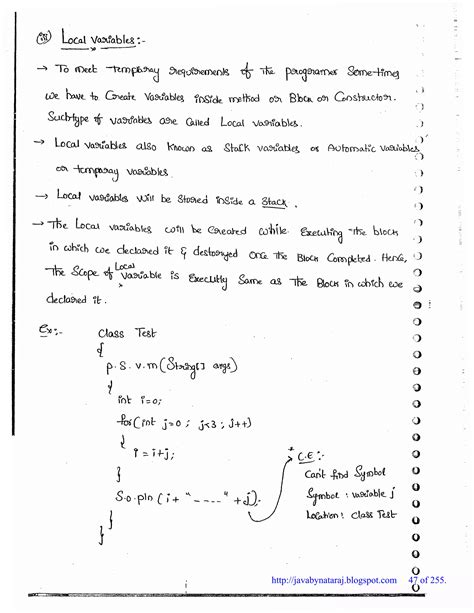 (iii) Local Variables:-
→ To meet temporary requirements of the programer Some-times
we have to Create Variables inside method or Block or Constructor.
Such type of variables are Called Local variables.
→ Local variables also known as Stack variables or Automatic variables
or temporary variables.
→ Local variables will be Stored inside a Stack.
→ The Local variables will be Created while Executing the block
in which we declared it & destroyed Once the Block Completed. Hence,
The Scope of Local variable is Execltly Same as The Block in which we
declared it.
Ex:- Class Test
{
p.s.v.m(String[] args)
{
int i=0;
for(int j=0 ; j<3 ; j++)
{
i = i+j;
}
S.o.pln (i+ "----" +j);
}
}
C.E:-
Can't find Symbol
Symbol : variable j
Location : class Test
http://javabynataraj.blogspot.com 47 of 255.